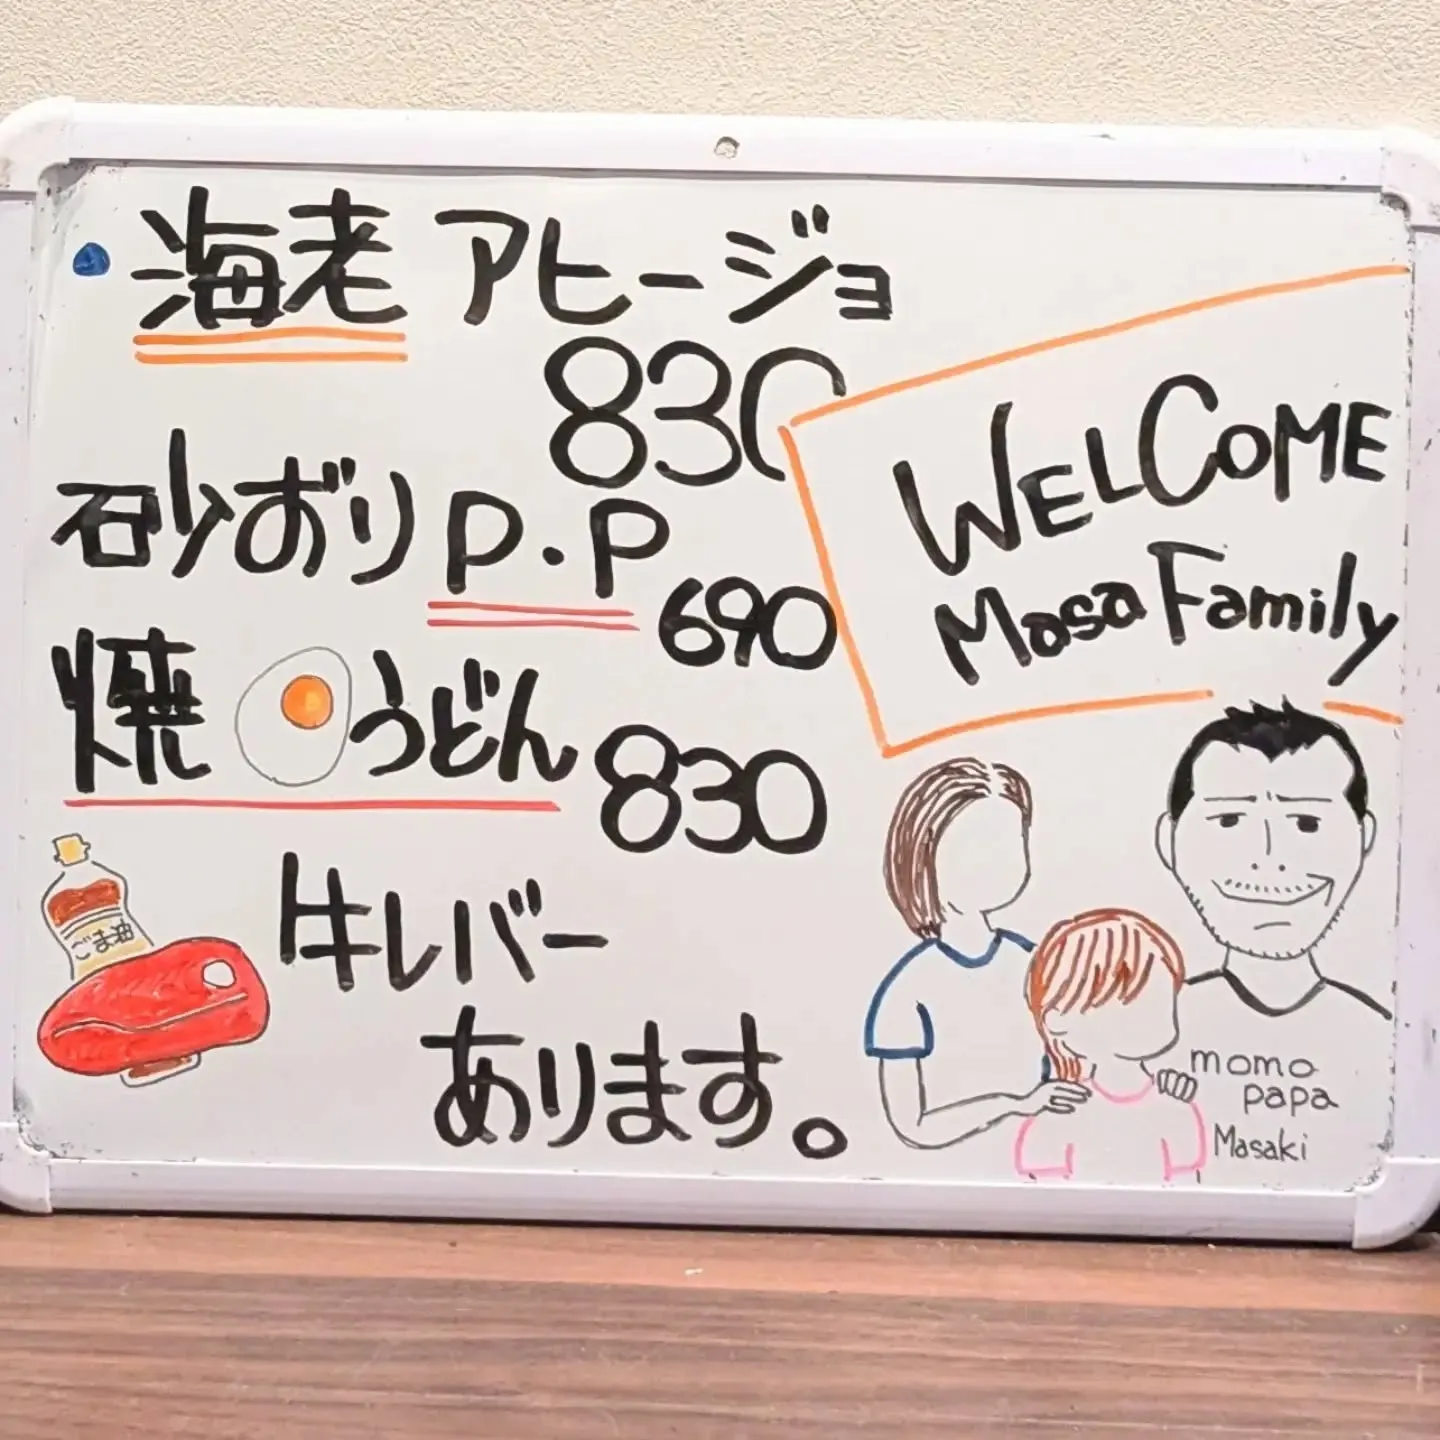 海老 アヒージョ
830
砂ずり P.P
690
焼うどん 830
ごま油
牛レバー
あります。
WELCOME
Masa Family
momo
papa
Masaki